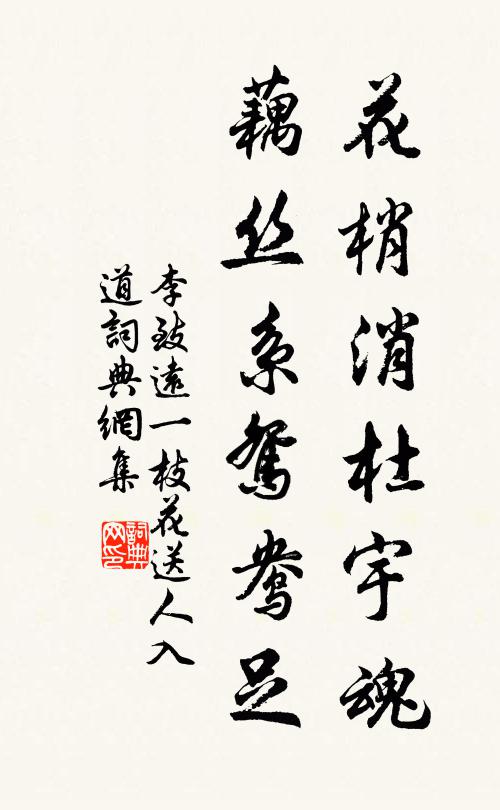 花梢消杜宇魂
藕丝系鸳鸯足
李致遠一枝花送人入
道詞典網集
詞典网印